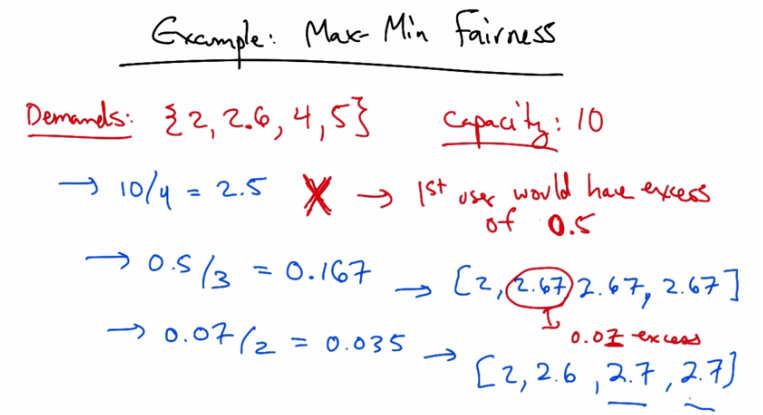 Example: Max-Min Fairness
Demands: {2, 2.6, 4, 5} Capacity: 10
→ 10/4 = 2.5 X → 1st user would have excess
of 0.5
→ 0.5/3 = 0.167 → [2, 2.67, 2.67, 2.67]
0.07 excess
→ 0.07/2 = 0.035 → [2, 2.6, 2.7, 2.7]